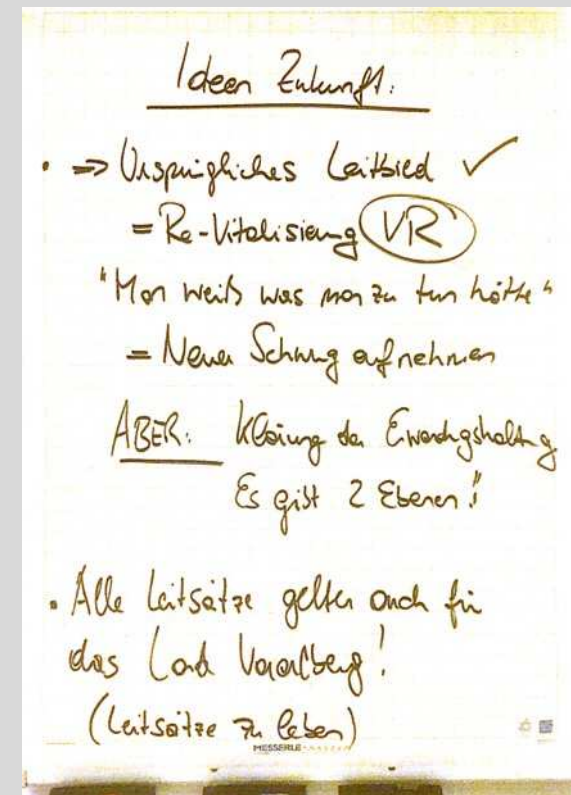 Ideen Zukunft:
• => Ursprüngliches Leitbild ✓
= Re-Vitalisierung VR
"Man weiß was man zu tun hätte"
= Neuen Schwung aufnehmen
ABER: Klärung der Erwartungshaltung
Es gibt 2 Ebenen!"
• Alle Leitsätze gelten auch für
das Land Vorarlberg!
(Leitsätze zu leben)
MESSERLE